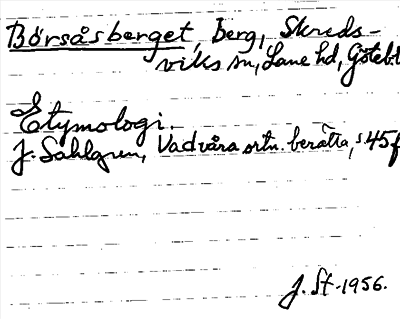 Börsåsberget, berg, Skreds-
viks sn, Lane hd, Götebl.
Etymologi.
J. Sahlgren, Vad våra ortn. berätta, s 45 f
J. St. 1956.